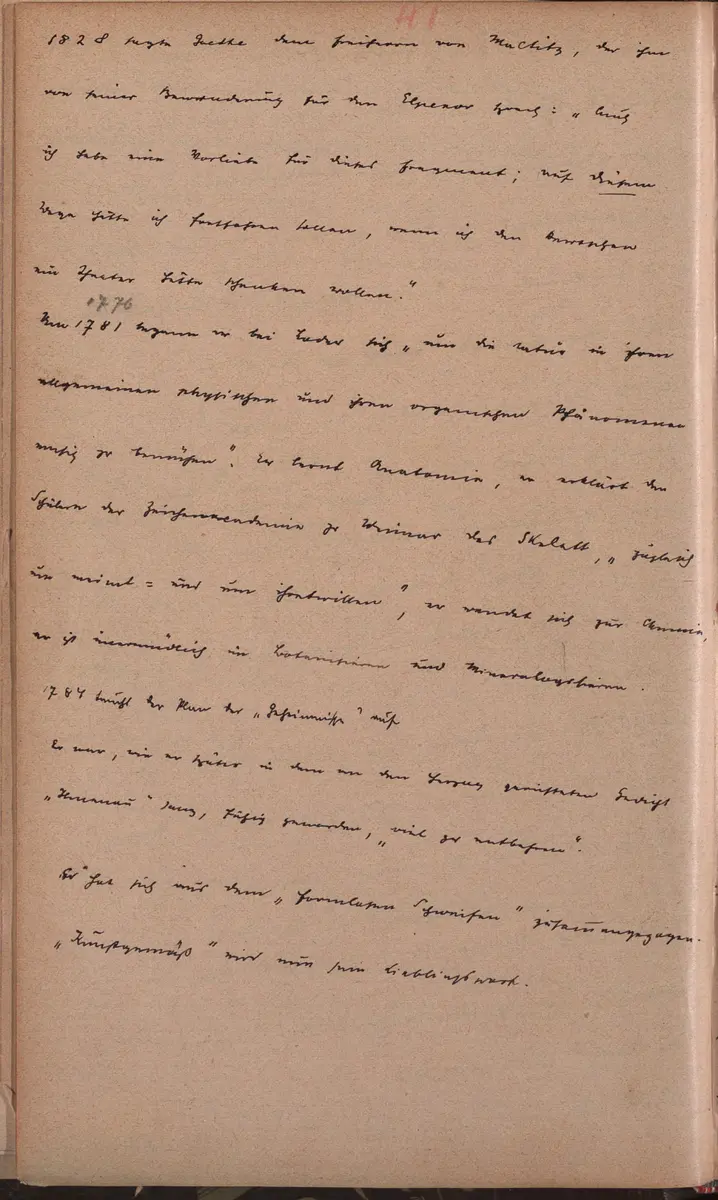 41
1828 sagte Goethe dem Freiherrn von Maltitz, der ihm
von seiner Bewunderung für den Elpenor sprach: „Auch
ich habe eine Vorliebe für dieses Fragment; auf diesem
Wege hätte ich fortfahren sollen, wenn ich den Deutschen
ein Theater hätte schenken wollen."
1776
1781 begann er bei Loder sich „um die Natur in ihren
allgemeinen physischen und ihren organischen Phänomenen
emsig zu bemühen". Er lernt Anatomie, er erklärt den
Schülern der Zeichenacademie zu Weimar das Skelett, „zugleich
um meinet = und um ihretwillen", er wendet sich zur Chemie,
er ist unermüdlich im Botanisieren und Mineralogisieren.
1784 taucht der Plan der „Geheimnisse" auf
Er war, wie er später in dem an den Herzog gerichteten Gedicht
„Ilmenau" sang, fähig geworden, „viel zu entbehren".
Er hat sich aus dem „formlosen Schweifen" zusammengezogen.
„Kunstgemäß" wird nun sein Lieblingswort.